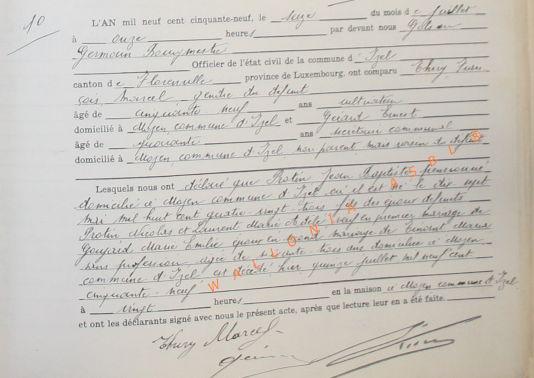 10
L'AN mil neuf cent cinquante-neuf, le seize du mois de juillet
à onze heures par devant nous Gillon
Germain Bourgmestre
Officier de l'état civil de la commune d'Izel
canton de Florenville province de Luxembourg, ont comparu Thiry
Marcel, gendre du défunt
âgé de cinquante neuf ans cultivateur
domicilié à Moyen commune d'Izel et Gérard Ernest
âgé de quarante ans secrétaire communal
domicilié à Moyen commune d'Izel, non parent, mais voisin du défunt
Lesquels nous ont déclaré que Protin Jean Baptiste pensionné
domicilié à Moyen commune d'Izel où il est né le dix sept
mai mil huit cent quatre vingt trois fils des époux défunts
Protin Nicolas et Laurent Marie Adèle veuf en premier mariage de
Marie Emélie époux en second mariage de Marie
sans profession âgée de soixante trois ans domiciliée à Moyen
commune d'Izel est décédé hier quinze juillet mil neuf cent
cinquante neuf
à vingt heures en la maison à Moyen commune d'Izel
et ont les déclarants signé avec nous le présent acte, après que lecture leur en a été faite.
Thiry Marcel
WALLONIA ASBL